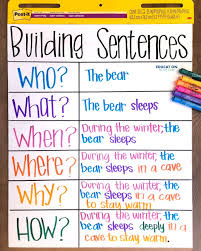 Post-it
Building Sentences
WHO?
The bear
What?
The bear sleeps
When?
During the winter, the
bear sleeps
Where?
During the winter, the
bear sleeps in a cave
Why?
During the winter, the
bear sleeps in a cave
to stay warm.
How?
During the winter, the
bear sleeps deeply in a
cave to stay warm.